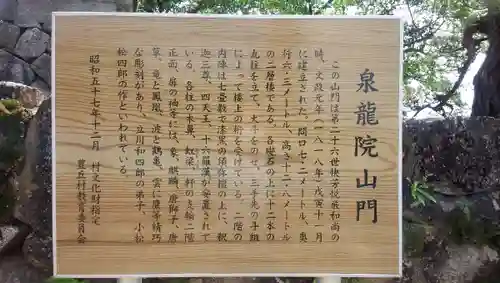 泉龍院山門
この山門は第二十六世快芳悦成和尚の
時、文政元年(一八一八年)戊寅十一月
に建立された。間口七・二メートル、奥
行六・三メートル、高さ十二・一メートル
の二層楼である。各礎石の上に十二本の
丸柱を立て、大斗をのせ、三手先の斗組
によって楼上の桁を受けている。二階の
内陣は七畳敷で漆黒の須弥壇の上に、釈
迦三尊、四天王、十六羅漢が安置されて
いる。各柱の木鼻、虹梁、軒の支輪、二階
正面、扉の袖等には、象、麒麟、唐獅子、唐
草、竜と鳳凰、波と鶴亀、雲と鷹等精巧
な彫刻があり、立川和四郎の弟子、小松
松四郎の作といわれている。
昭和五十七年十二月 村文化財指定
豊丘村教育委員会